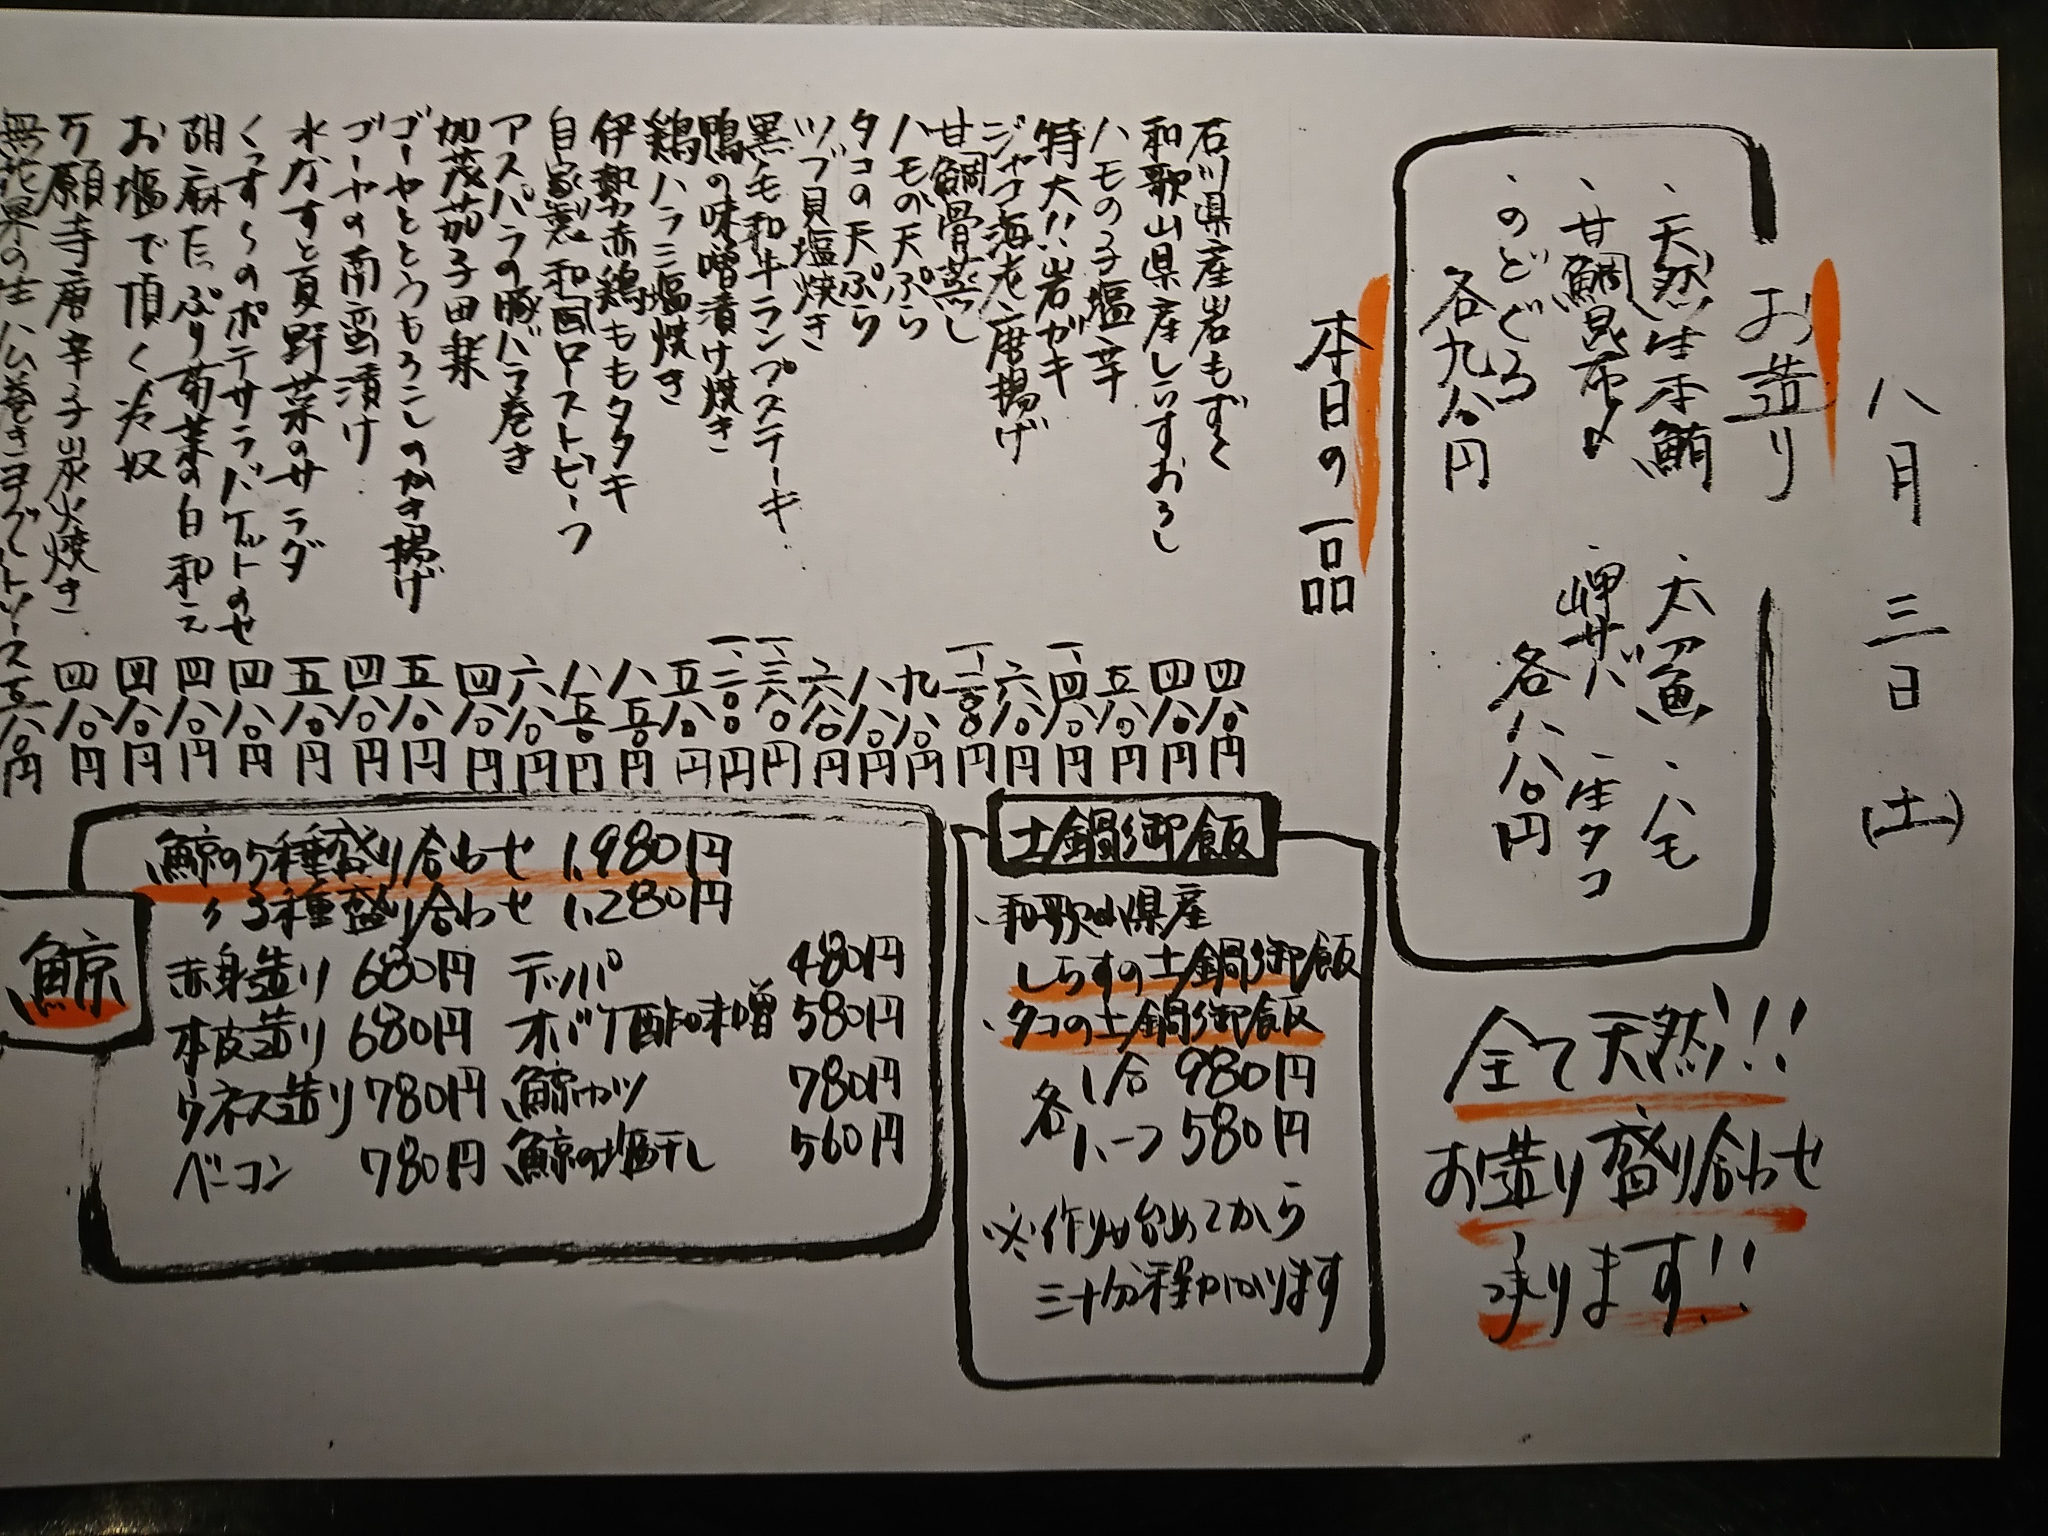 八月三日(土)
お造り
・天然生本鮪 ・太刀魚 ・ハモ
・甘鯛昆布〆 ・岬サバ ・生タコ
・のどぐろ 各八八〇円
各九八〇円
全て天然!!
お造り盛り合わせ
承ります!!
本日の一品
石川県産岩もずく 四八〇円
和歌山県産しらすおろし 四八〇円
ハモの子塩辛 五八〇円
特大!!岩ガキ 一、四八〇円
ジャコ海老唐揚げ 六八〇円
甘鯛骨蒸し 一、二八〇円
ハモの天ぷら 九八〇円
タコの天ぷら 八八〇円
ツブ貝塩焼き 六八〇円
黒毛和牛ランプステーキ 一、三八〇円
鴨の味噌漬け焼き 一、二〇〇円
鶏ハラミ塩焼き 五八〇円
伊勢赤鶏ももタタキ 八五〇円
自家製和風ローストビーフ 八五〇円
アスパラの豚バラ巻き 六八〇円
加茂茄子田楽 四八〇円
ゴーヤととうもろこしのかき揚げ 五八〇円
ゴーヤの南蛮漬け 四八〇円
水なすと夏野菜のサラダ 五八〇円
くっす〜のポテサラバケットのせ 四八〇円
胡麻たっぷり菊菜の白和え 四八〇円
お塩で頂く冷奴 四八〇円
万願寺唐辛子炭火焼き 四八〇円
無花果の生ハム巻きヨーグルトソース 五八〇円
土鍋御飯
・和歌山県産
しらすの土鍋御飯
・タコの土鍋御飯
各 1合 980円
ハーフ 580円
※作り始めてから
三十分程かかります
鯨
鯨の5種盛り合わせ 1,980円
〃 3種盛り合わせ 1,280円
赤身造り 680円 テッパ 480円
本皮造り 680円 オバケ酢味噌 580円
ウネス造り 780円 鯨カツ 780円
ベーコン 780円 鯨の塩干し 560円